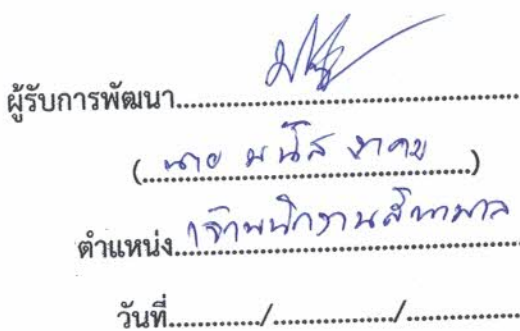 ผู้รับการพัฒนา....................
(นาย มนัส ....................)
ตำแหน่ง เจ้าพนักงาน....................
วันที่............/............/............